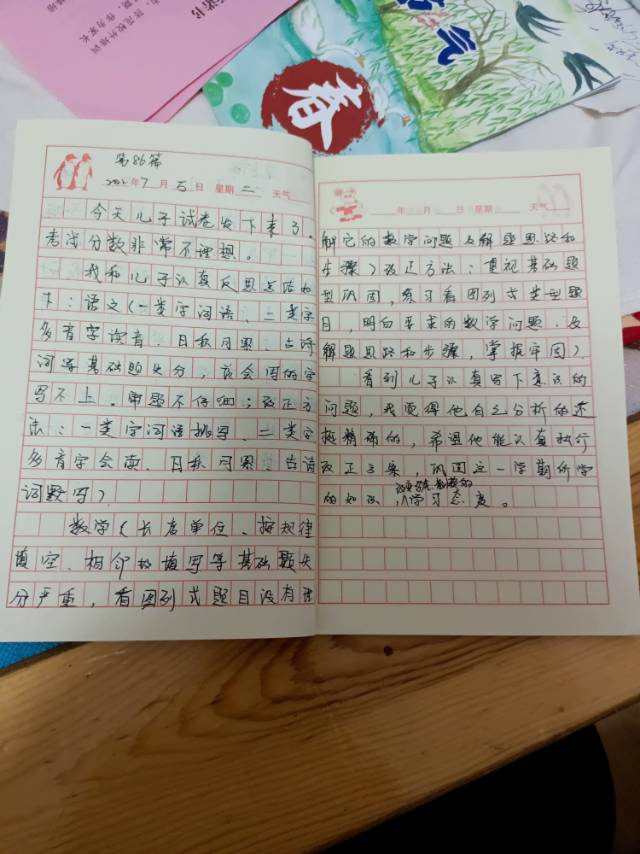 春
气
第86篇
2022年7月5日 星期二 天气
今天儿子试卷发下来了。
考试分数非常不理想。
我和儿子认真反思总结如
下：语文（一类字词语、二类字
多音字读音、日积月累、古诗
词等基础题失分，该会写的字
写不上。审题不仔细；改正方
法：一类字词语听写、二类字
多音字会读、日积月累、古诗
词默写）
数学（长度单位、按规律
填空、相邻的填写等基础题失
分严重，看图列式题目没有理
年 月 日 星期 天气
解它的数学问题及解题思路和
步骤）改正方法：重视基础题
型巩固，练习看图列式类型题
目，明白要求的数学问题、及
解题思路和步骤，掌握牢固）
看到儿子认真写下意识的
问题，我觉得他自己分析的还
挺精准的，希望他能认真执行
改正方案，巩固这一学期所学
的知识，学习态度。